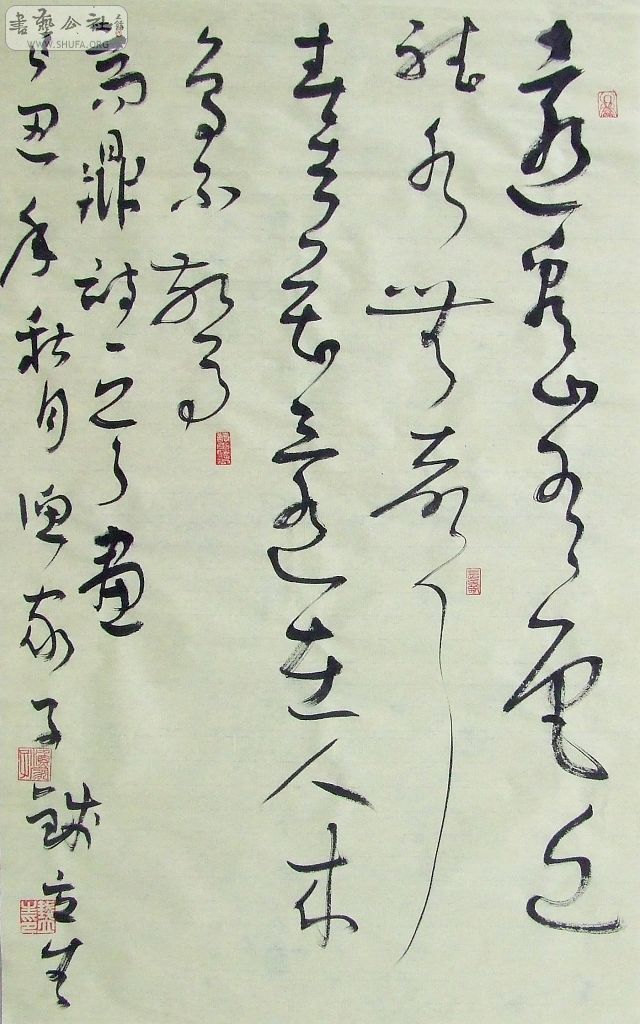 書藝公社
WWW.SHUFA.ORG
遠看山有色近
聽水無聲
春去花還在人来
鳥不驚
高鼎詩一畫
己丑年秋月漁家子